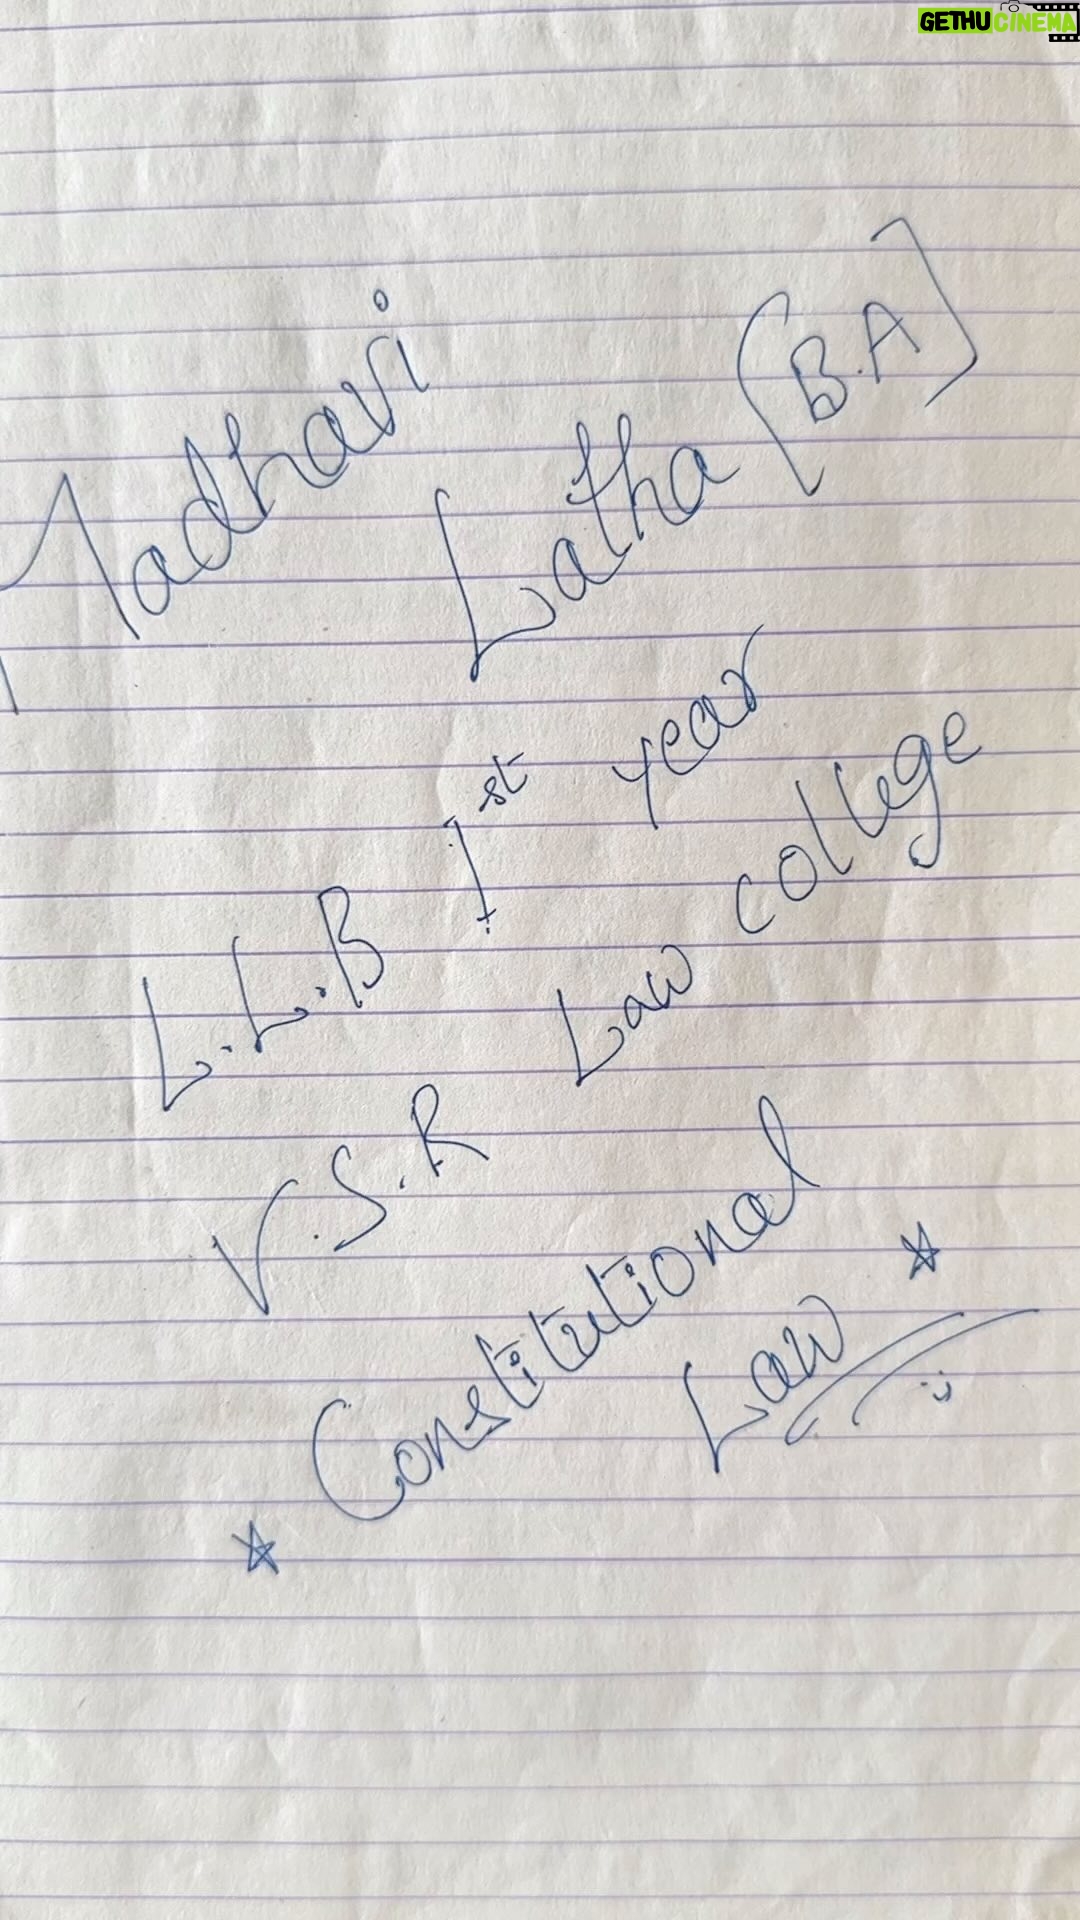 GETHUCINEMA
Madhavi
Latha [B.A]
L.L.B 1st year
V.S.R Law college
Constitutional
Law